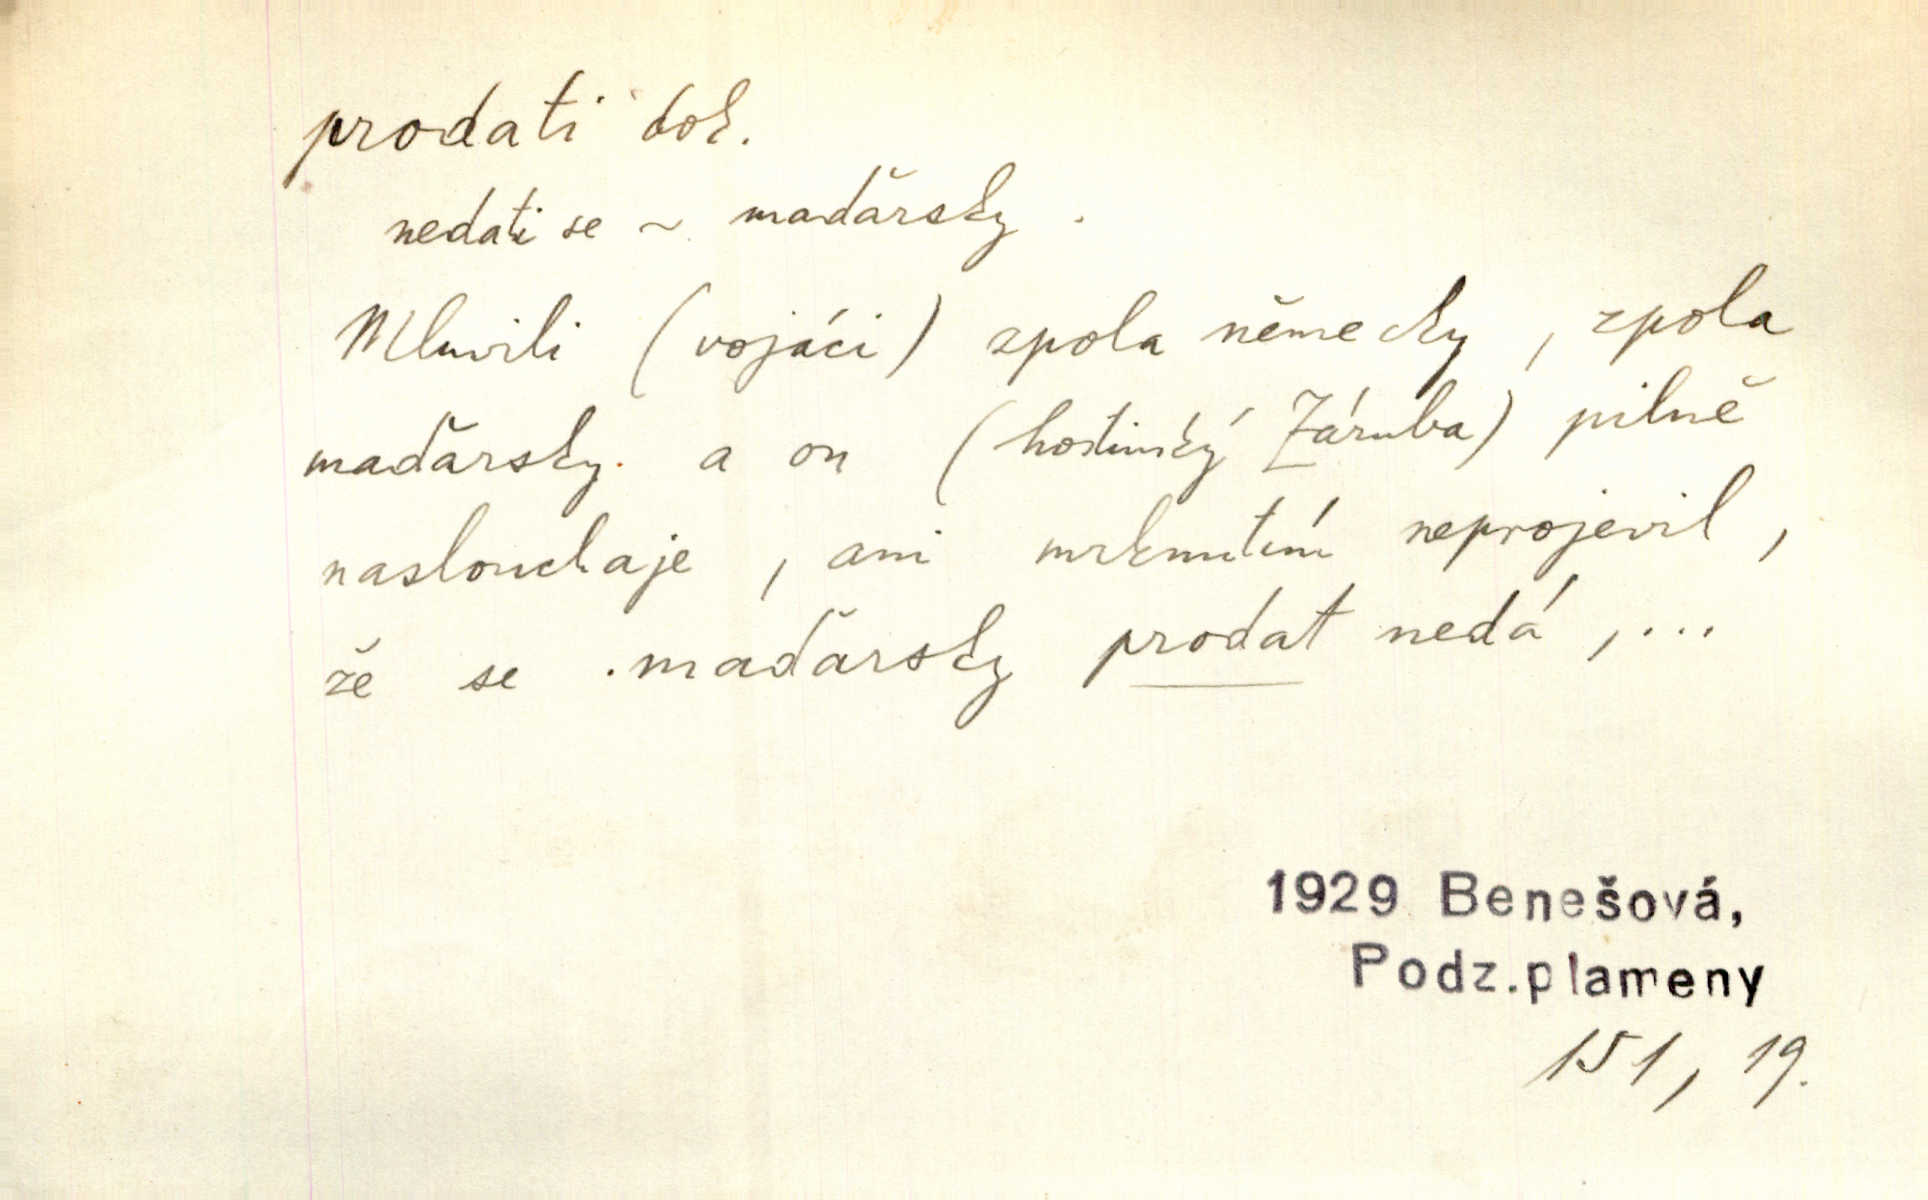 prodati dok.
nedati se ~ maďarsky.
Mluvili (vojáci) zpola německy, zpola
maďarsky. a on (hostinský Záruba) pilně
naslouchaje, ani mrknutím neprojevil,
že se maďarsky prodat nedá,...
1929 Benešová,
Podz.plameny
151, 19.